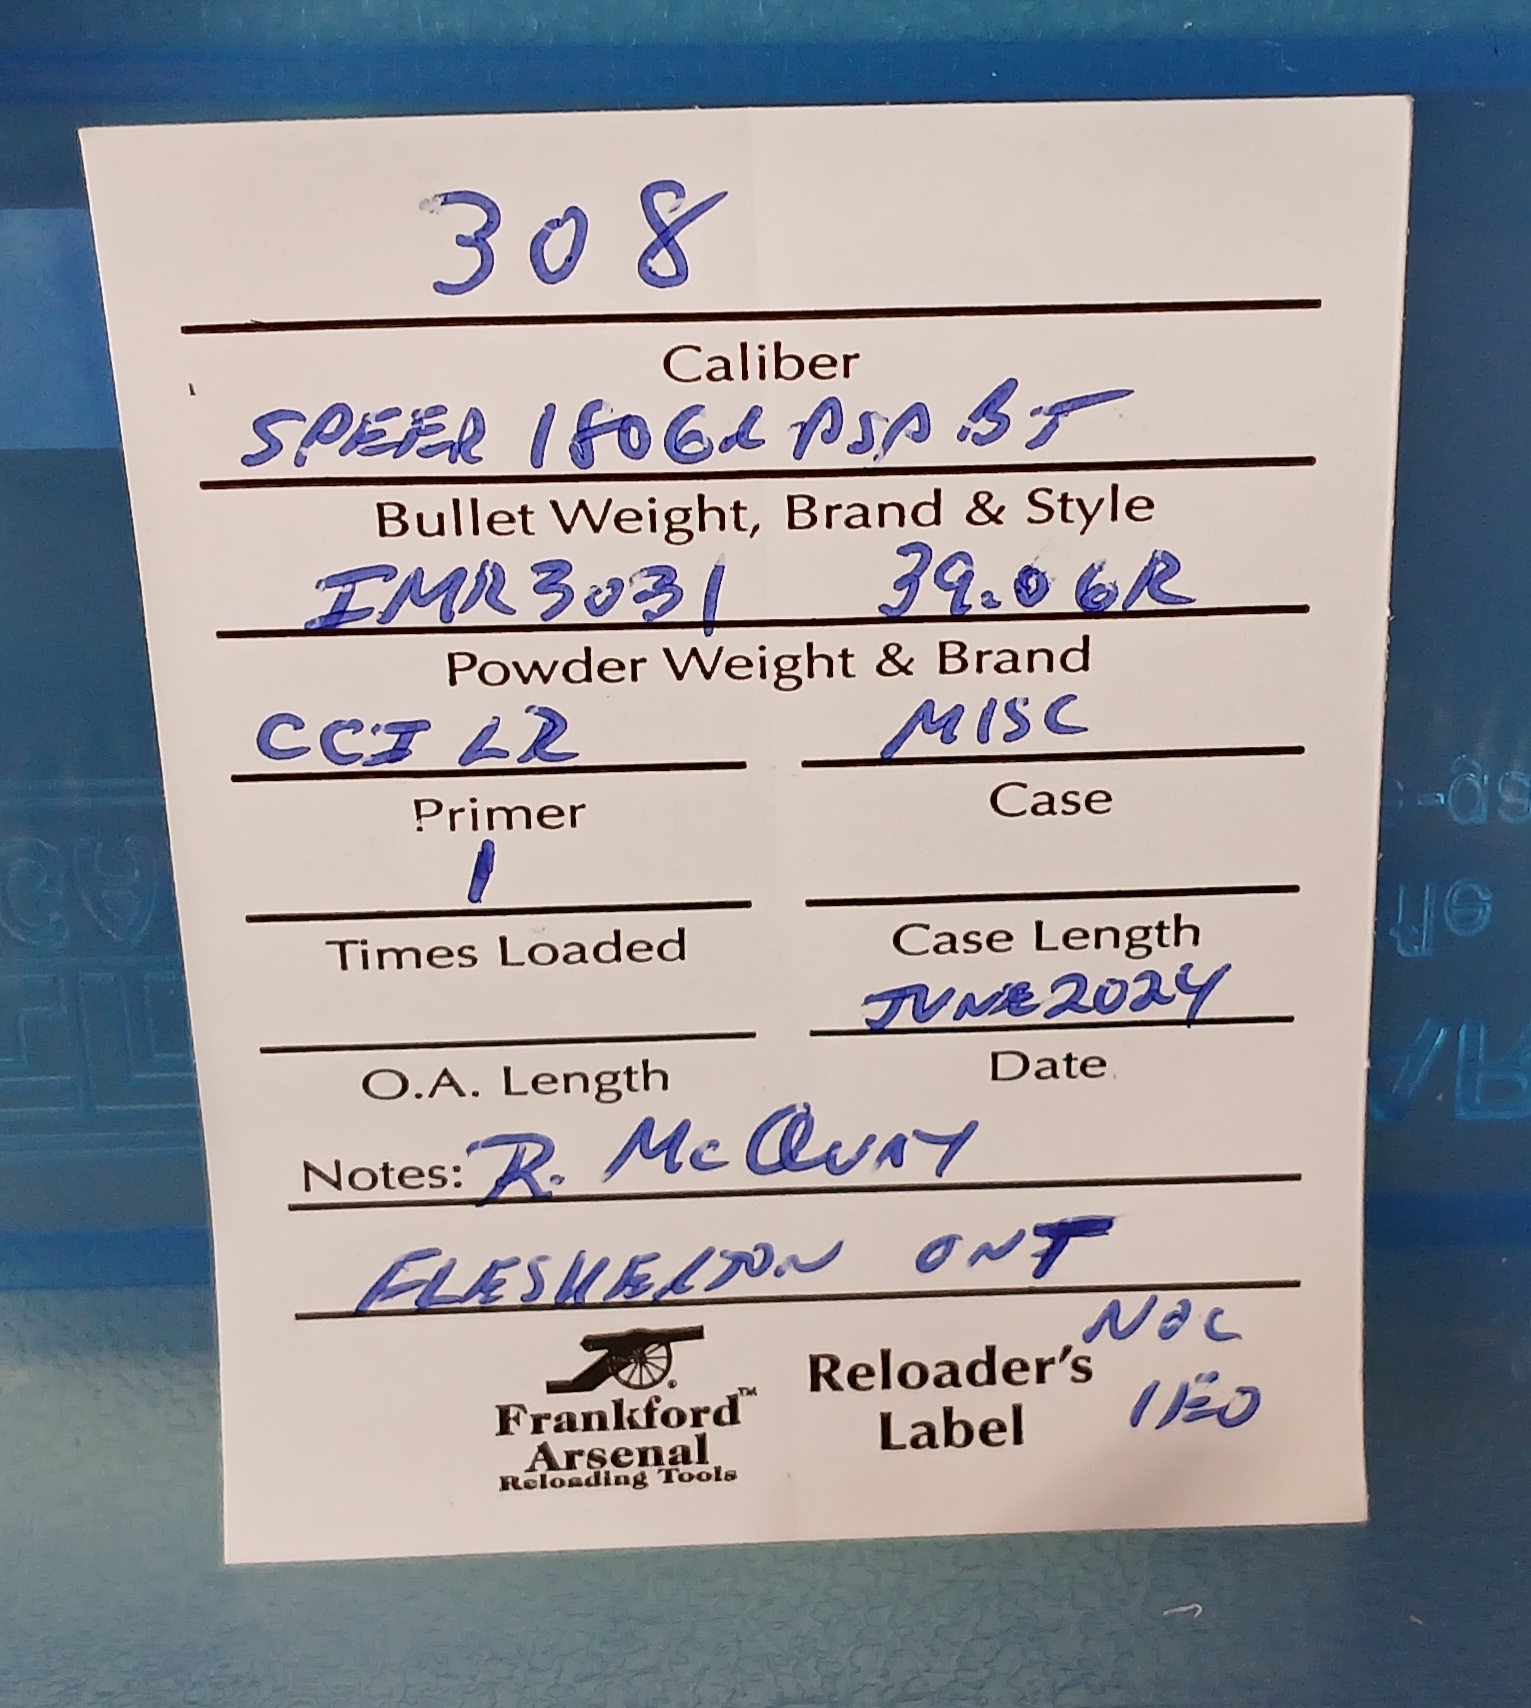 308
Caliber
SPEER 180GR PSP BT
Bullet Weight, Brand & Style
IMR3031 39.0 GR
Powder Weight & Brand
CCI LR MISC
Primer Case
1
Times Loaded Case Length
JUNE 2024
O.A. Length Date
Notes: R. McQUAY
FLESHERTON ONT
NOC
1E0
Frankford™ Reloader's
Arsenal Label
Reloading Tools